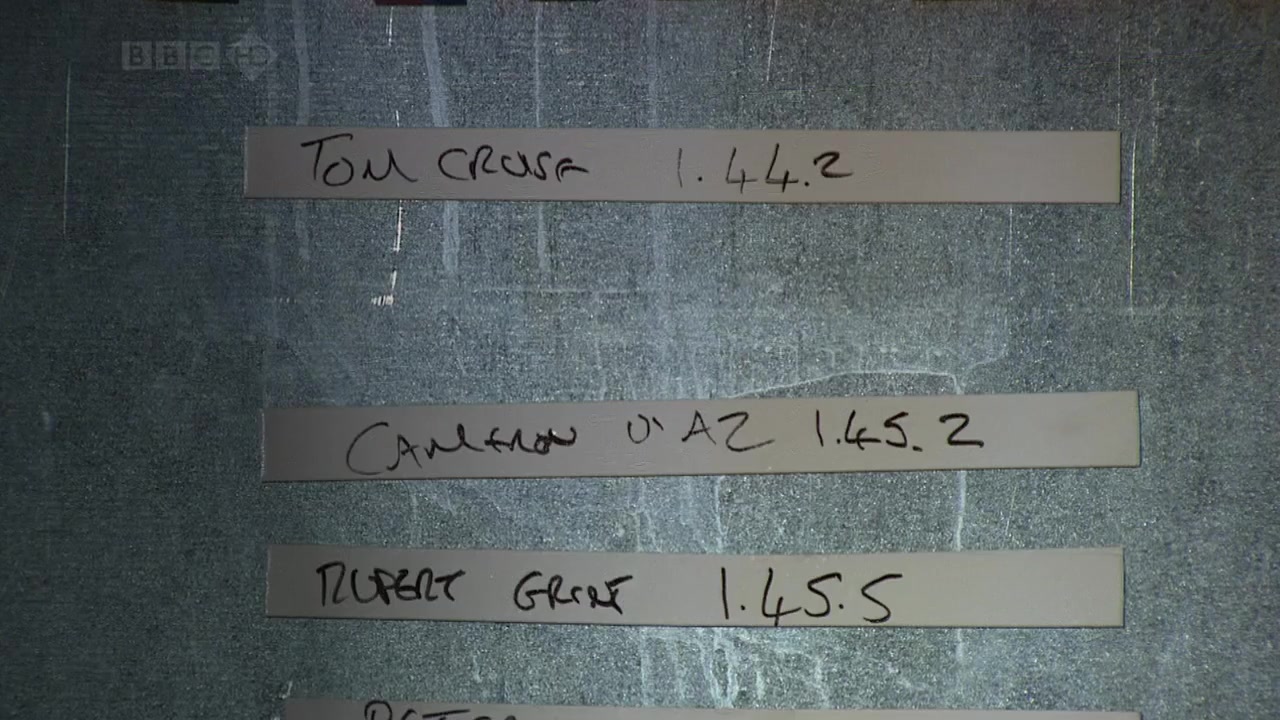 BBC HD
TOM CRUISE 1.44.2
CAMERON DIAZ 1.45.2
RUPERT GRINT 1.45.5